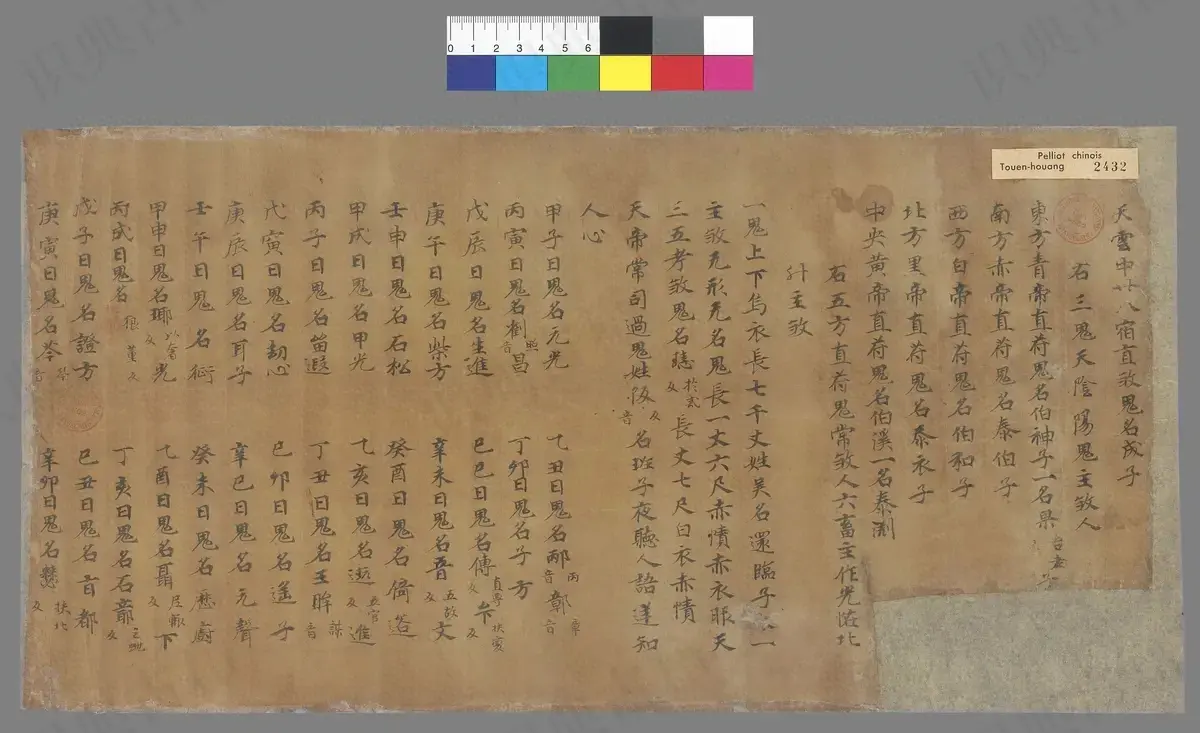 Pelliot chinois
Touen-houang 2432
0 1 2 3 4 5 6
天雲中廿八宿直煞鬼名成子
右三鬼天陰陽鬼主煞人
東方青帝直符鬼名伯神子一名
南方赤帝直符鬼名泰伯子
西方白帝直符鬼名伯和子
北方黑帝直符鬼名泰衣子
中央黃帝直符鬼名伯溪一名泰渕
右五方直符鬼常煞人六畜主作光恠北
斗主煞
一鬼上下烏衣長七千丈姓吴名還臨子一
主煞无形无名鬼長一丈六尺赤幘赤衣眼天
三五考煞鬼名 反長丈七尺白衣赤幘
天帝常司過鬼姓 反音名班子夜聽人語逆知
人心
甲子日鬼名元光 乙丑日鬼名邴音丙鄣音章
丙寅日鬼名 音照昌 丁卯日鬼名子方
戊辰日鬼名生進 己巳日鬼名傅
庚午日鬼名柴方 辛未日鬼名晉 反五故文
壬申日鬼名石松 癸酉日鬼名
甲戌日鬼名甲光 乙亥日鬼名 反五官進
丙子日鬼名苗遐 丁丑日鬼名王眸音謀
戊寅日鬼名劫心 己卯日鬼名遥子
庚辰日鬼名耳子 辛巳日鬼名元聲
壬午日鬼名 癸未日鬼名歷廚
甲申日鬼名 反光 乙酉日鬼名聶反 下
丙戌日鬼名 丁亥日鬼名石 反
戊子日鬼名證方 己丑日鬼名百都
庚寅日鬼名岑音 辛卯日鬼名 反扶北